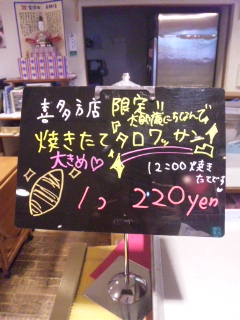 喜多方店 限定!!
焼きたてタロワッサン
大きめ♡
12:00焼き
たてです
1つ 220yen